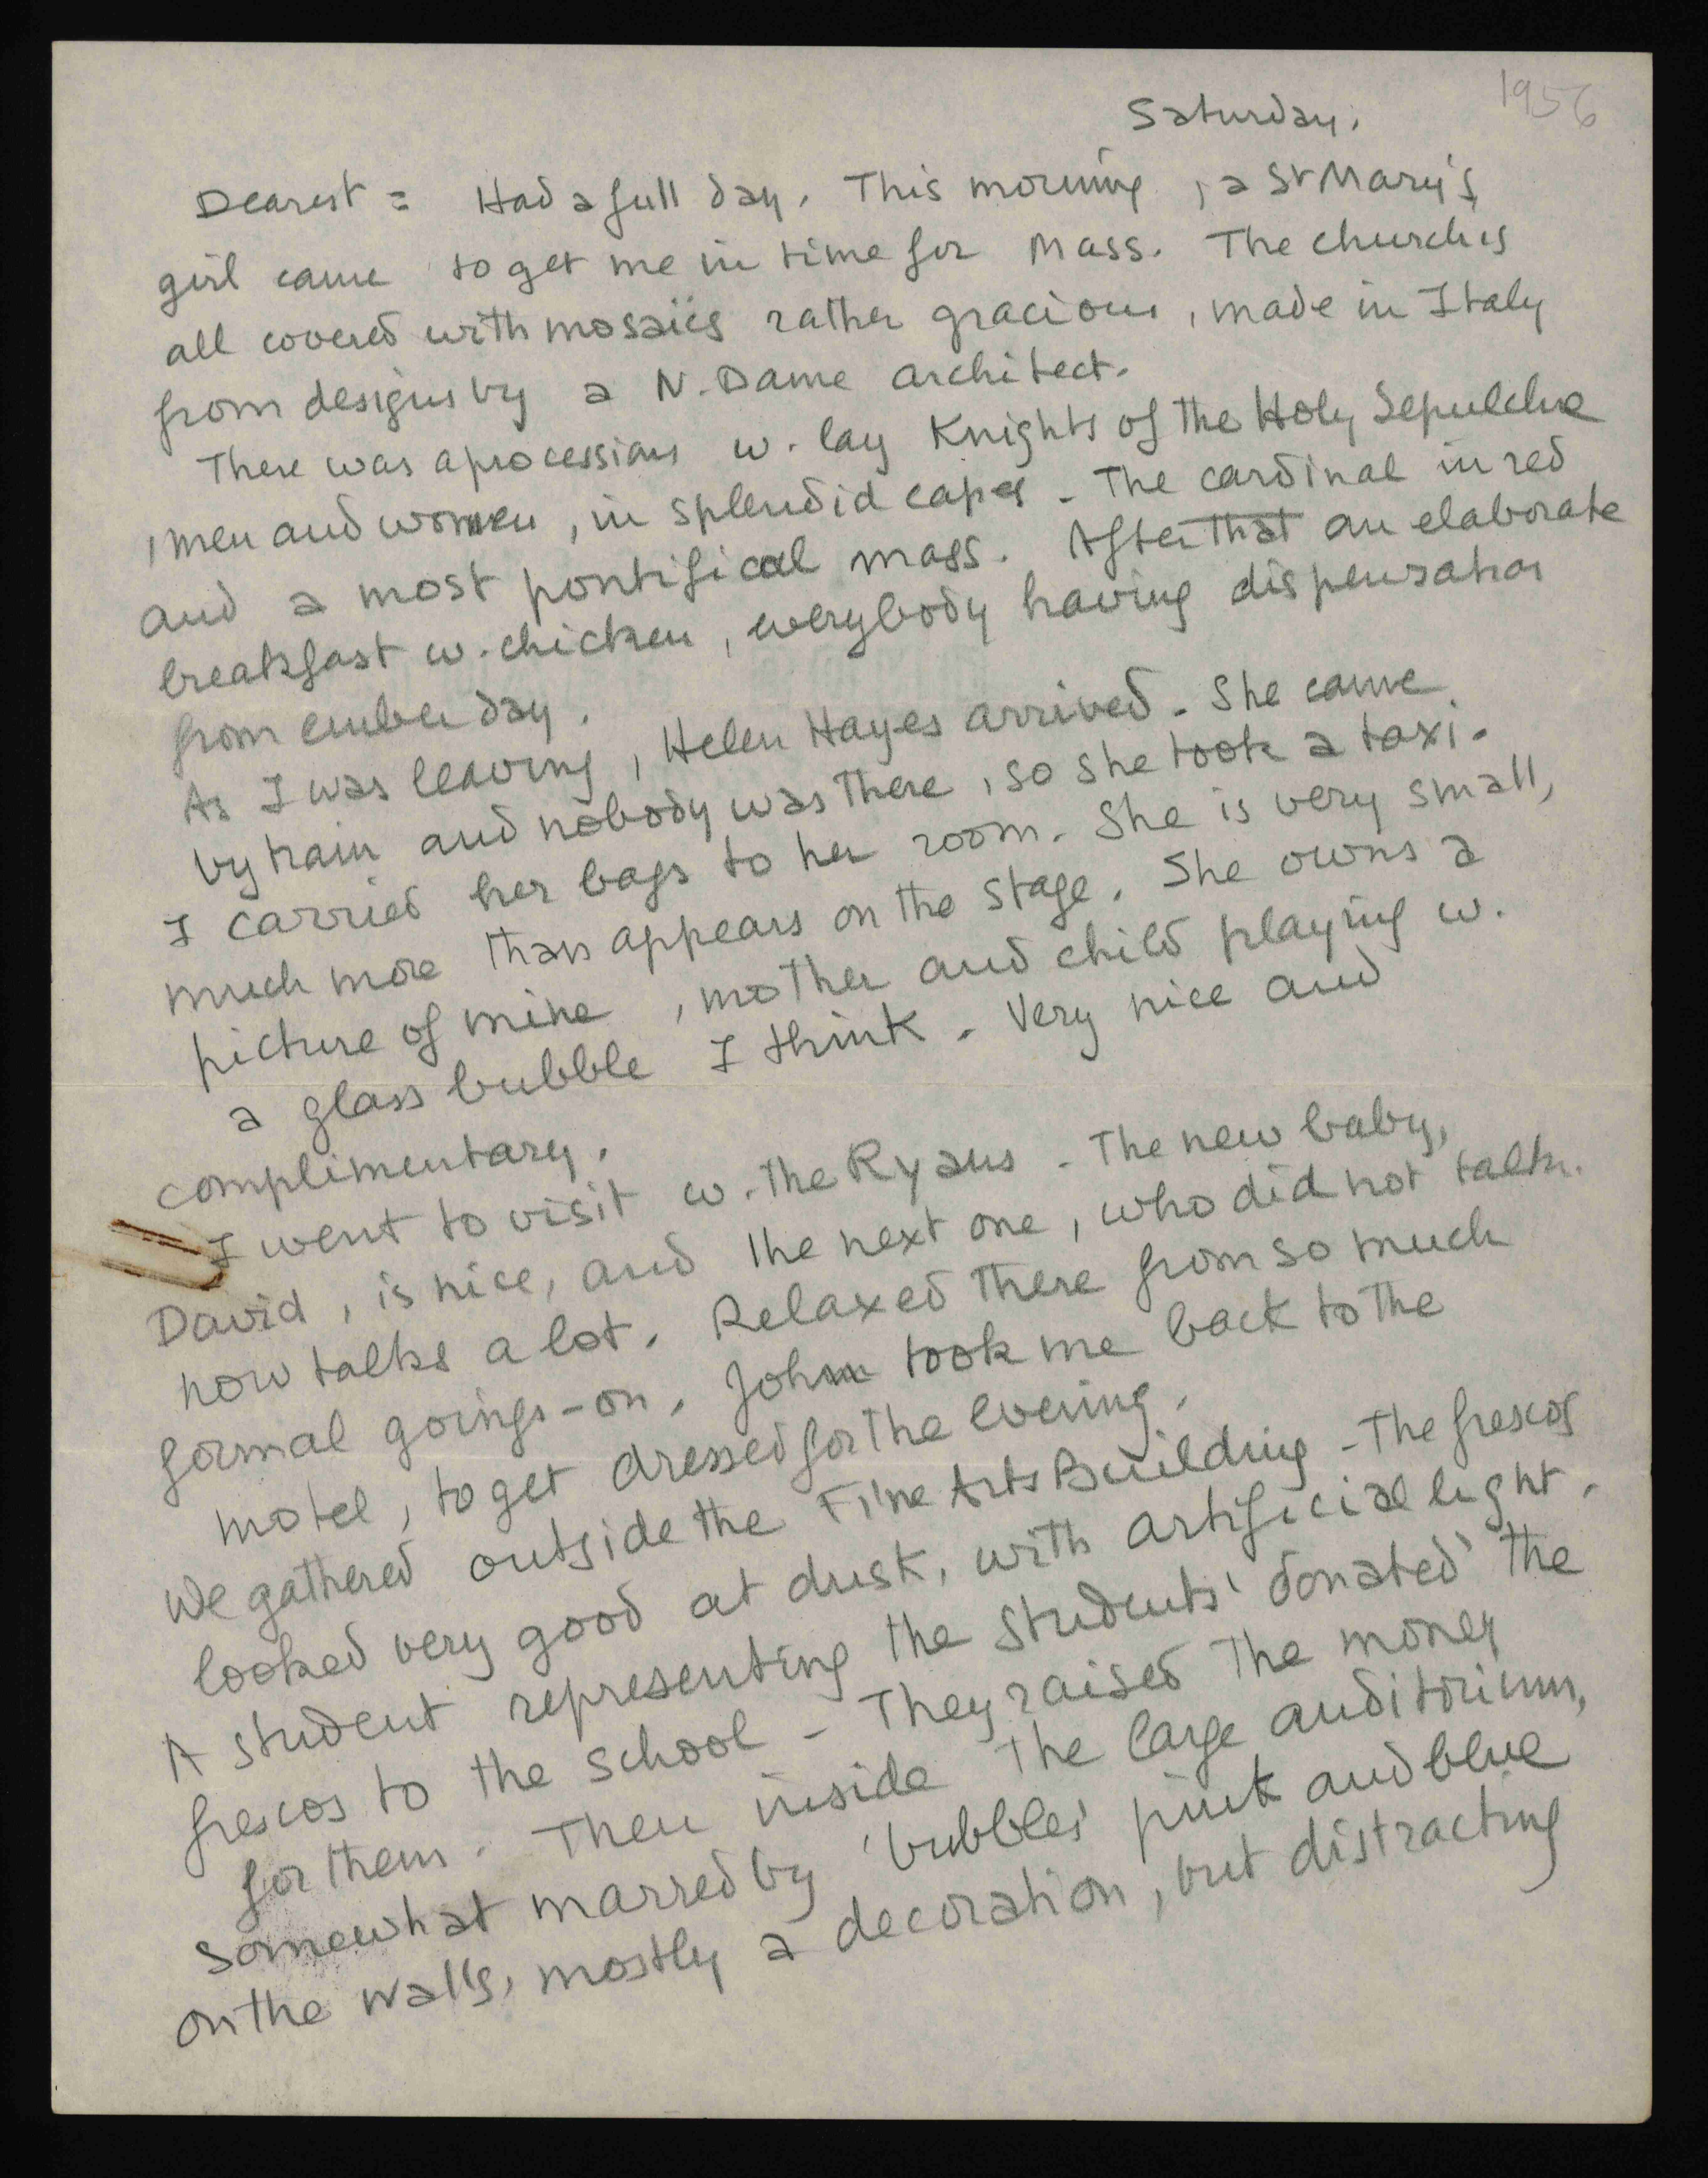 1956
Saturday.
Dearest = Had a full day. This morning, a St Mary's
girl came to get me in time for Mass. The church is
all covered with mosaics rather gracious, made in Italy
from designs by a N. Dame architect.
There was a procession w. lay Knights of the Holy Sepulchre
, men and women, in splendid capes - The cardinal in red
and a most pontifical mass. After that an elaborate
breakfast w. chicken, everybody having dispensation
from ember day.
As I was leaving, Helen Hayes arrived. She came
by train and nobody was there, so she took a taxi.
I carried her bags to her room. She is very small,
much more than appears on the stage. She owns a
picture of mine, mother and child playing w.
a glass bubble I think. Very nice and
complimentary.
I went to visit w. the Ryans - The new baby,
David, is nice, and the next one, who did not talk.
now talks a lot. Relaxed there from so much
formal goings-on. John took me back to the
motel, to get dressed for the evening.
We gathered outside the Fine Arts Building - The frescos
looked very good at dusk, with artificial light.
A student representing the students 'donated' the
frescos to the school - They raised the money
for them. Then inside the large auditorium,
somewhat marred by 'bubbles' pink and blue
on the walls, mostly a decoration, but distracting